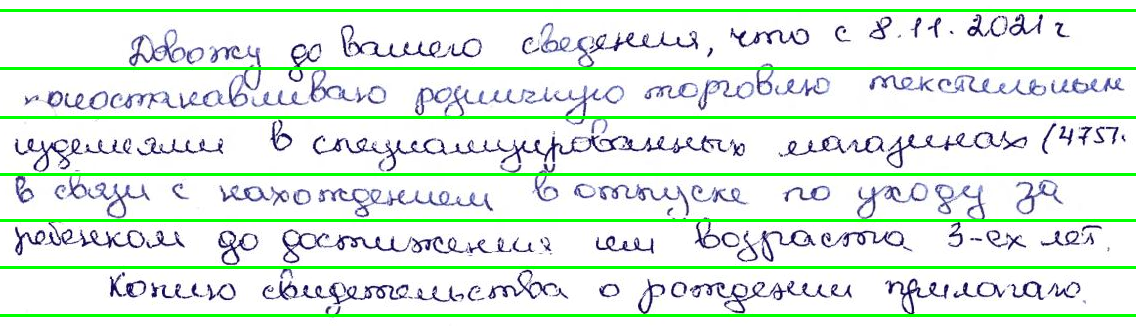 Довожу до вашего сведения, что с 8.11.2021г
приостанавливаю розничную торговлю текстильным
изделиями в специализированных магазинах (4751.
в связи с нахождением в отпуске по уходу за
ребенком до достижения им возраста 3-ех лет.
Копию свидетельства о рождении прилагаю.